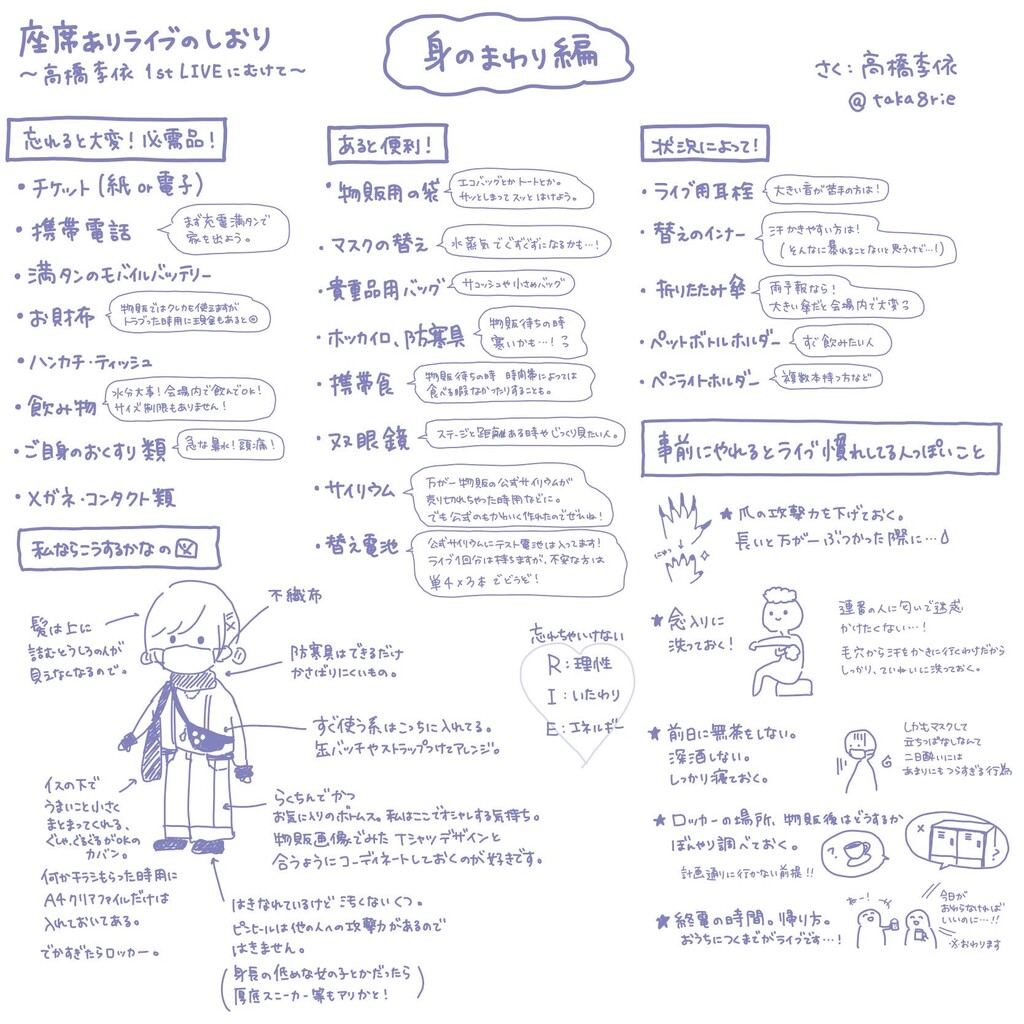 座席ありライブのしおり
～高橋李依 1st LIVEにむけて～
身のまわり編
さく：高橋李依
@taka8rie
忘れると大変！必需品！
・チケット（紙or電子）
・携帯電話
まず充電満タンで
家を出よう。
・満タンのモバイルバッテリー
・お財布
物販ではクレカも使えますが
トラブった時用に現金もあると◎
・ハンカチ・ティッシュ
・飲み物
水分大事！会場内で飲んでOK！
サイズ制限もありません！
・ご自身のおくすり類
急な鼻水！頭痛！
・メガネ・コンタクト類
あると便利！
・物販用の袋
エコバッグとかトートとか。
サッとしまってスッとはけよう。
・マスクの替え
水蒸気でぐずぐずになるかも…！
・貴重品用バッグ
サコッシュや小さめバッグ
・ホッカイロ、防寒具
物販待ちの時
寒いかも…！
・携帯食
物販待ちの時 時間帯によっては
食べる暇なかったりすることも。
・双眼鏡
ステージと距離ある時やじっくり見たい人。
・サイリウム
万が一物販の公式サイリウムが
売り切れちゃった時用などに。
でも公式のもかわいく作れたのでぜひね！
・替え電池
公式サイリウムにテスト電池は入ってます！
ライブ1回分は持ちますが、不安な方は
単4×3本でどうぞ！
状況によって！
・ライブ用耳栓
大きい音が苦手の方は！
・替えのインナー
汗かきやすい方は！
（そんなに暴れることないと思うけど…！）
・折りたたみ傘
雨予報なら！
大きい傘だと会場内で大変っ
・ペットボトルホルダー
すぐ飲みたい人
・ペンライトホルダー
複数本持つ方など
事前にやれるとライブ慣れしてる人っぽいこと
★爪の攻撃力を下げておく。
長いと万が一ぶつかった際に…
★念入りに
洗っておく！
連番の人に匂いで迷惑
かけたくない…！
毛穴から汗をかきに行くわけだから
しっかり、ていねいに洗っておく。
★前日に無茶をしない。
深酒しない。
しっかり寝ておく。
しかもマスクして
立ちっぱなしなんて
二日酔いには
あまりにもつらすぎる行為
★ロッカーの場所、物販後はどうするか
ぼんやり調べておく。
計画通りに行かない前提！！
★終電の時間。帰り方。
おうちにつくまでがライブです…！
ねー！
今日が
おわらなければ
いいのに…！！
※おわります
私ならこうするかなの図
髪は上に
詰むとうしろの人が
見えなくなるので。
不織布
防寒具はできるだけ
かさばりにくいもの。
すぐ使う系はこっちに入れてる。
缶バッチやストラップつけてアレンジ。
イスの下で
うまいこと小さく
まとまってくれる、
ぐしゃ、ぐるぐるがOKの
カバン。
何かチラシもらった時用に
A4クリアファイルだけは
入れておいてある。
でかすぎたらロッカー。
らくちんでかつ
お気に入りのボトムス。私はここでオシャレする気持ち。
物販画像でみたTシャツデザインと
合うようにコーディネートしておくのが好きです。
はきなれているけど汚くないくつ。
ピンヒールは他の人への攻撃力があるので
はきません。
（身長の低めな女の子とかだったら
厚底スニーカー等もアリかと！）
忘れちゃいけない
R：理性
I：いたわり
E：エネルギー